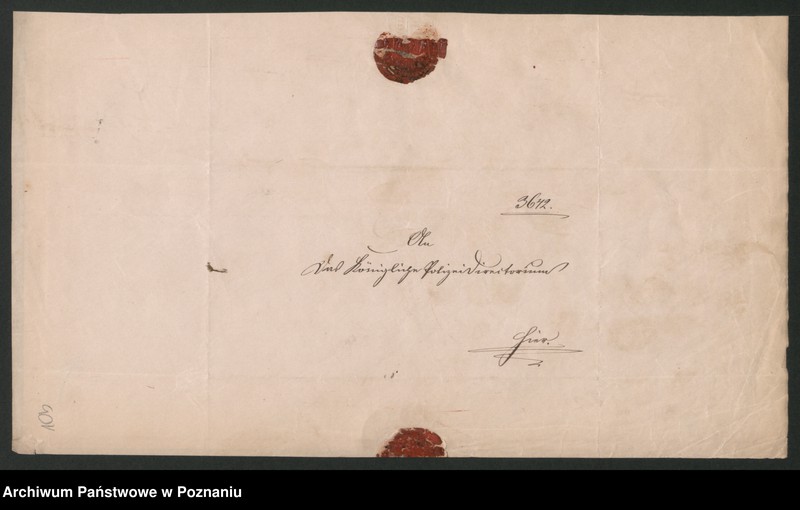 3642.
An
Das Königliche Polizei Directorium
hier.
103
Archiwum Państwowe w Poznaniu